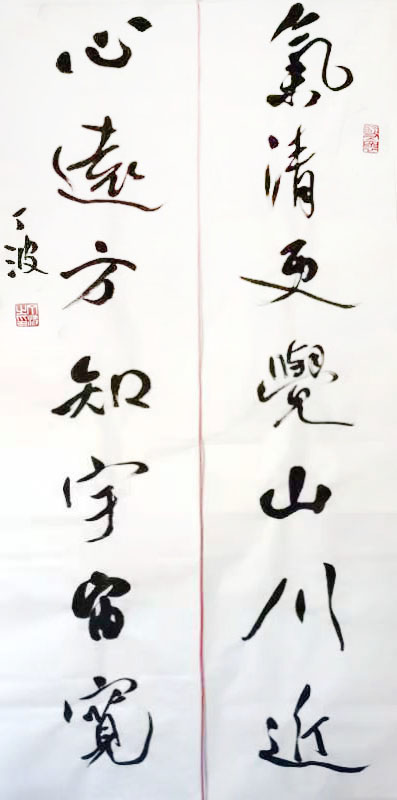 氣清更覺山川近
心遠方知宇宙寬
丁波